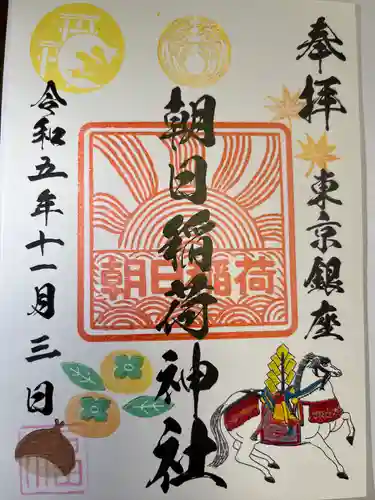 奉拝 東京銀座
朝日稲荷神社
朝日稲荷
令和五年十一月三日